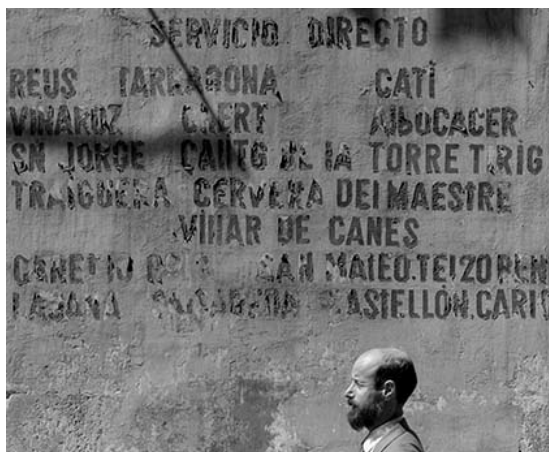 SERVICIO DIRECTO
REUS TARRAGONA CATÍ
VINAROZ CHERT ALBOCACER
SN JORGE CALIG DE LA TORRE T. RIG
TRAIGUERA CERVERA DEL MAESTRE
VILLAR DE CANES
CANET LO ROIG SAN MATEO.
LA JANA CASTELLÓN. CARIS